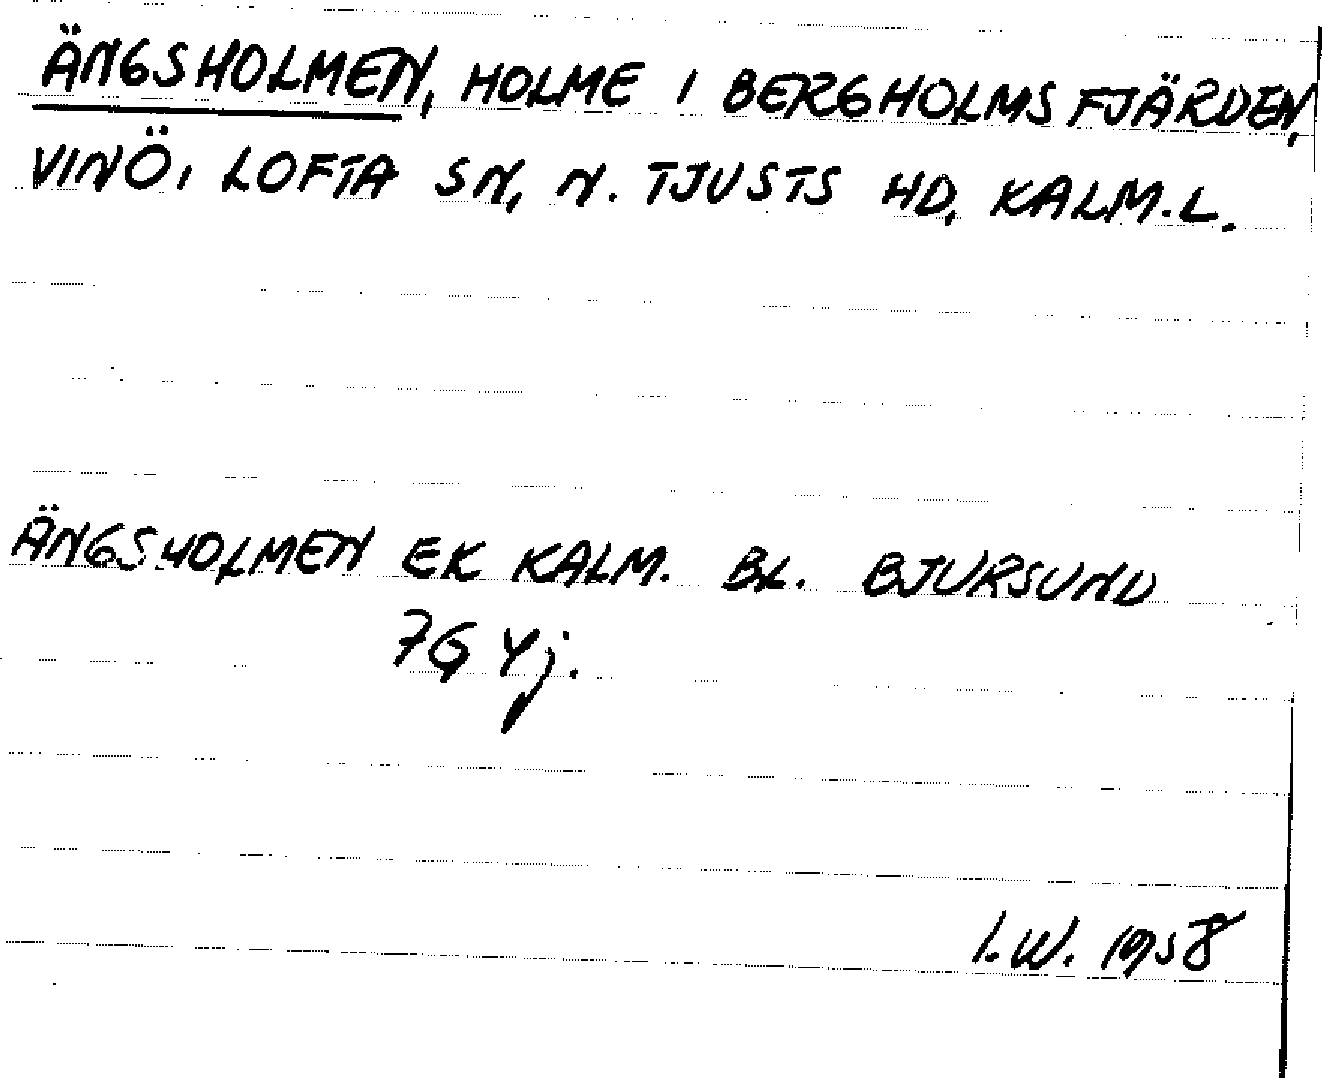 ÄNGSHOLMEN, HOLME I BERGHOLMSFJÄRDEN,
VINÖ, LOFTA SN, N. TJUSTS HD, KALM.L.
ÄNGSHOLMEN EK KALM. BL. BJURSUND
7G Yj.
I.W. 1958